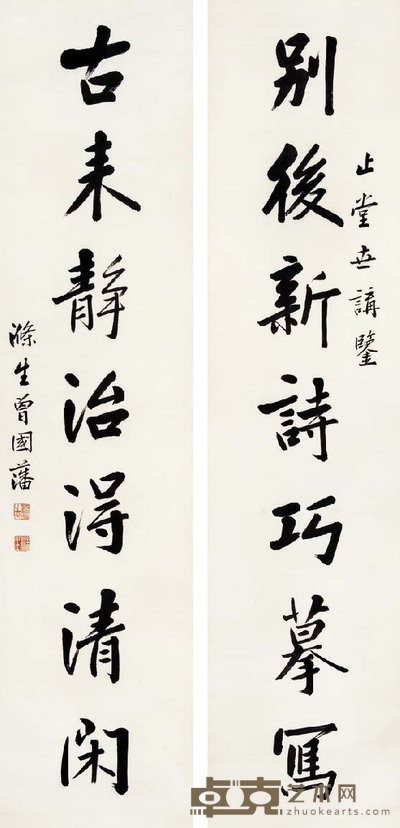 止堂世講鑒
别後新詩巧摹寫
古来静治得清閑
滌生曾國藩
卓克艺术网
zhuokearts.com